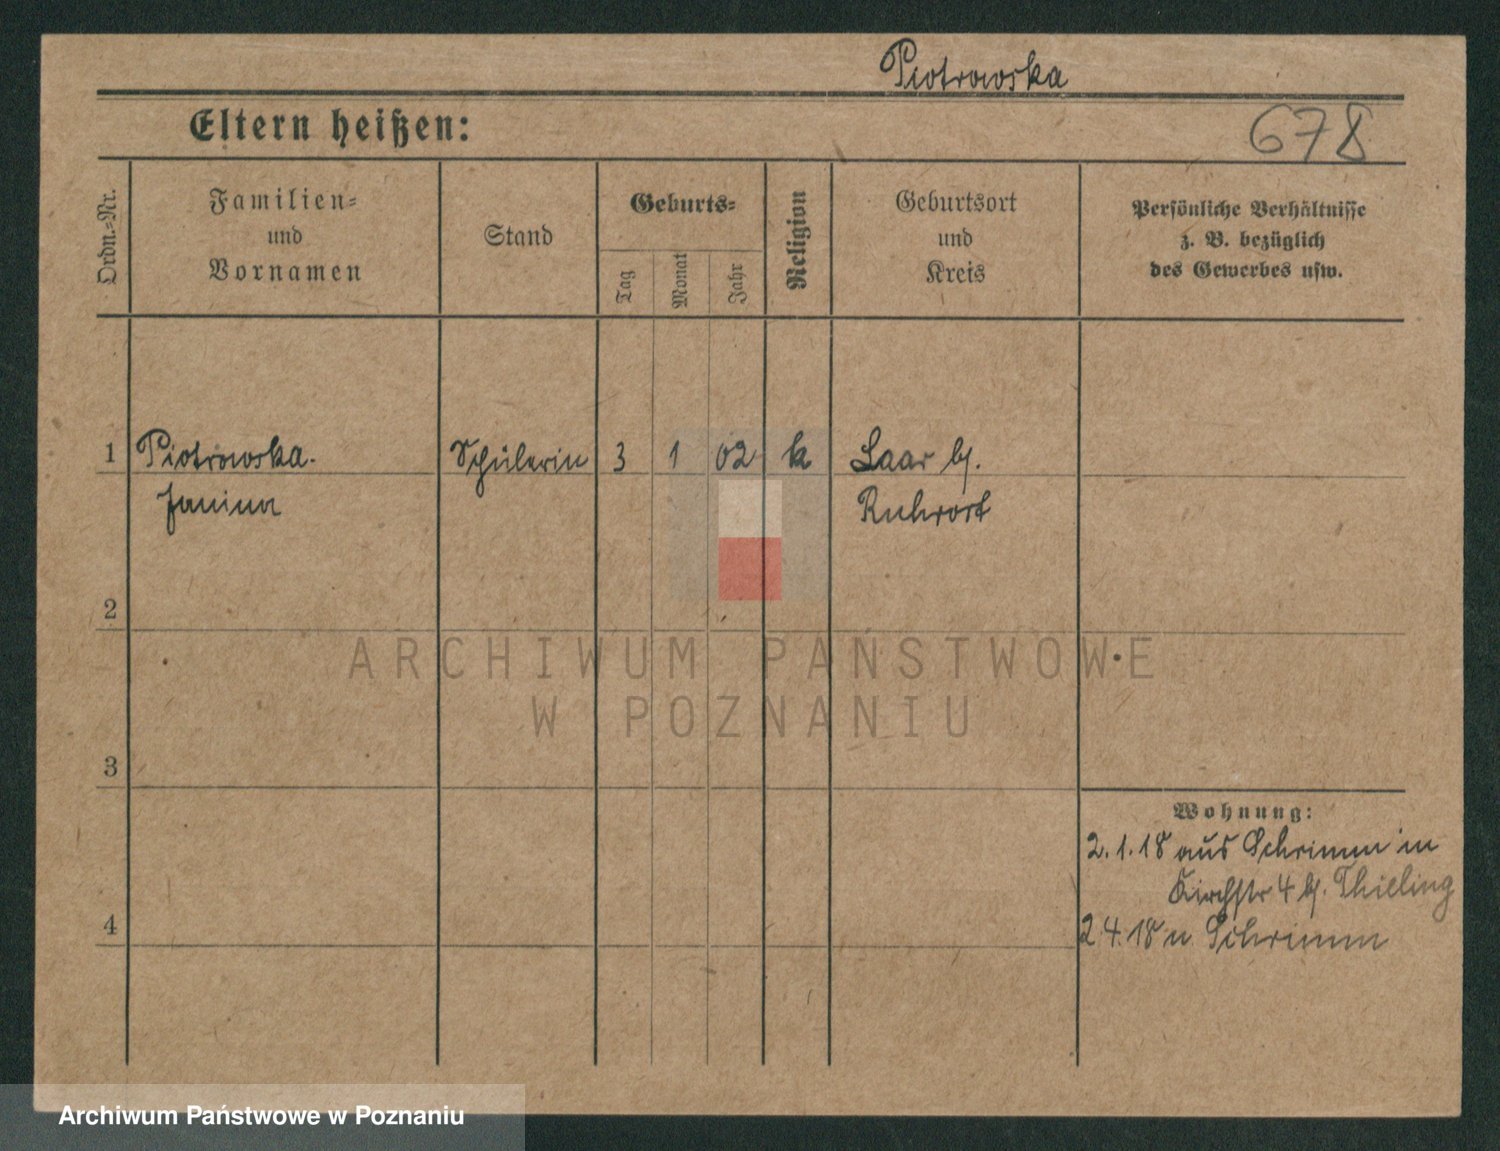 Piotrowska
Eltern heißen:
678
Ordn.-Nr.
Familien-
und
Vornamen
Stand
Geburts-
Tag
Monat
Jahr
Religion
Geburtsort
und
Kreis
Persönliche Verhältnisse
z. B. bezüglich
des Gewerbes usw.
1 Piotrowska. Schülerin 3 1 02 k Laar bj.
Janina Ruhrort
2
ARCHIWUM PAŃSTWOWE
W POZNANIU
3
Wohnung:
2.1.18 aus Schrimm in
Kirchstr 4 bj. Thieling
4
2.4.18 n Schrimm
Archiwum Państwowe w Poznaniu